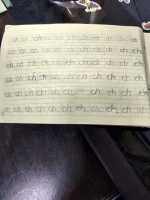 ch ch ch ch ch ch ch ch ch ch
ch ch ch ch ch ch ch ch ch ch
ch ch ch ch ch ch ch ch ch ch
ch ch ch ch ch ch ch ch ch
ch ch ch ch ch ch ch ch ch
ch ch ch ch ch ch ch ch ch
ch ch ch ch ch ch ch ch ch